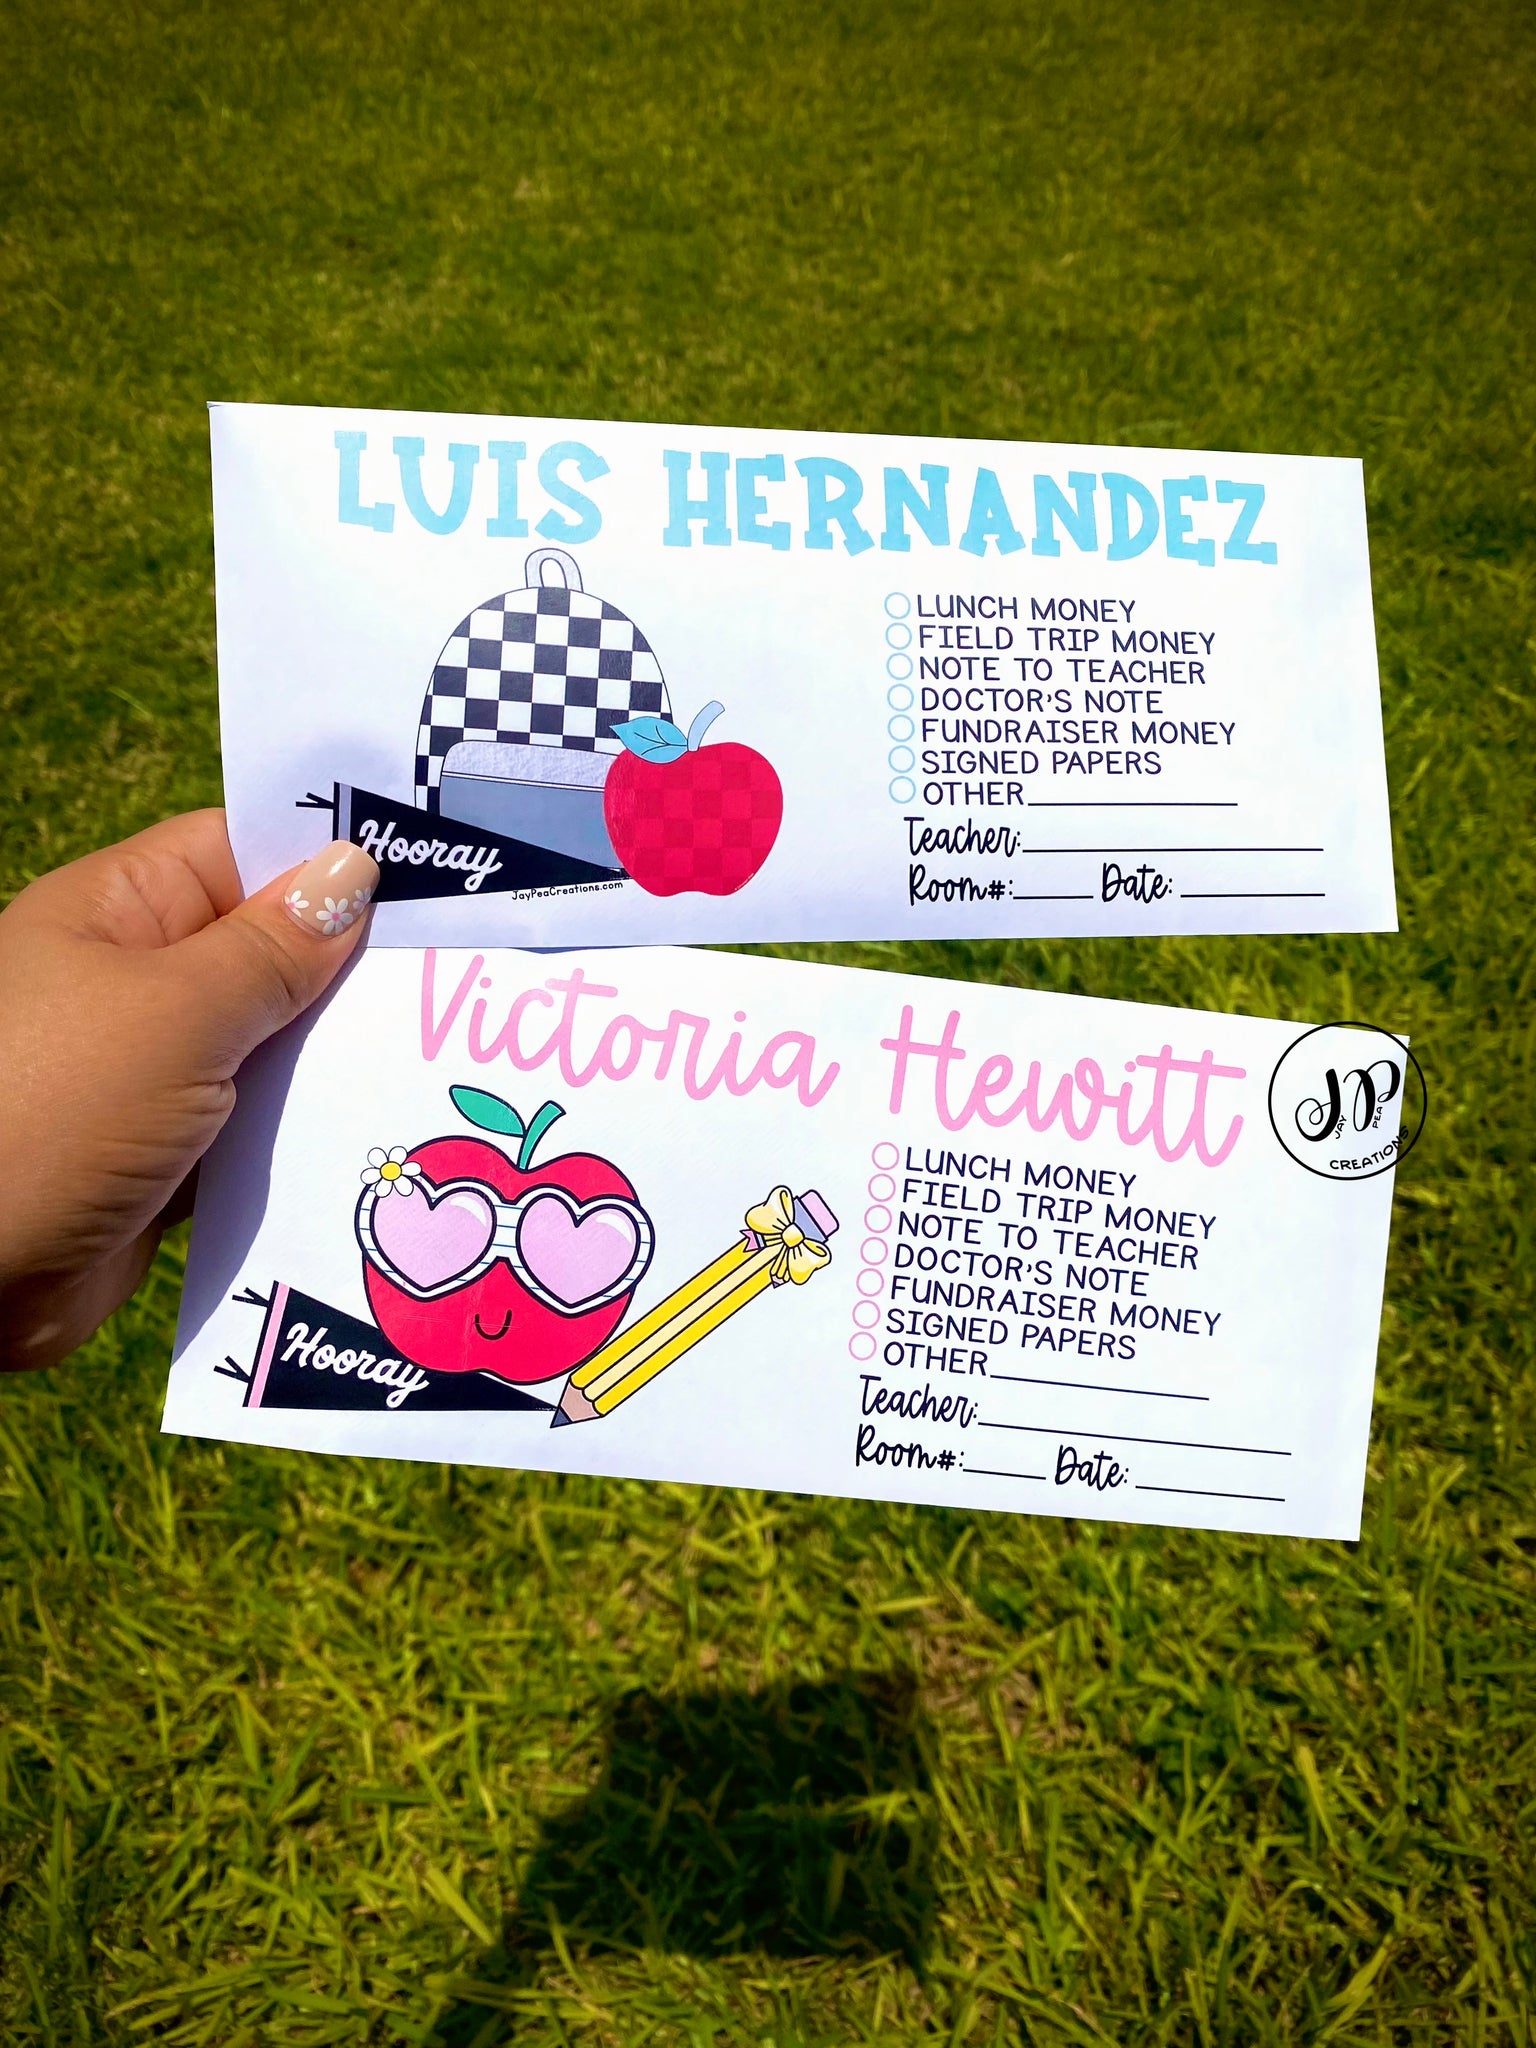 LUIS HERNANDEZ
LUNCH MONEY
FIELD TRIP MONEY
NOTE TO TEACHER
DOCTOR'S NOTE
FUNDRAISER MONEY
SIGNED PAPERS
OTHER
Teacher:
Room#: Date:
Hooray
JayPeaCreations.com
Victoria Hewitt
JP
JAY PEA
CREATIONS
LUNCH MONEY
FIELD TRIP MONEY
NOTE TO TEACHER
DOCTOR'S NOTE
FUNDRAISER MONEY
SIGNED PAPERS
OTHER
Teacher:
Room#: Date:
Hooray